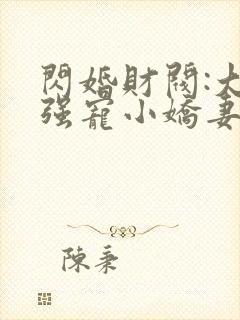 閃婚財閥:大
强寵小嬌妻
陳秉